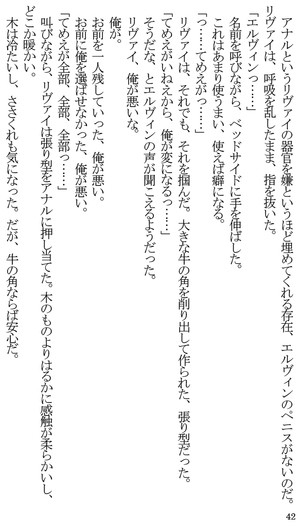 アナルというリヴァイの器官を嫌というほど埋めてくれる存在、エルヴィンのペニスがないのだ。
リヴァイは、呼吸を乱したまま、指を抜いた。
「エルヴィンっ……」
名前を呼びながら、ベッドサイドに手を伸ばした。
これはあまり使うまい、使えば癖になる。
「っ……てめえがっ……」
「てめえがいねえから、俺が変になるっ……」
リヴァイは、それでも、それを掴んだ。大きな牛の角を削り出して作られた、張り型だった。
そうだな、とエルヴィンの声が聞こえるようだった。
リヴァイ、俺が悪いな。
俺が。
お前を一人残していった、俺が悪い。
お前に俺を選ばせなかった、俺が悪い。
「てめえが全部、全部、全部っ……」
叫びながら、リヴァイは張り型をアナルに押し当てた。木のものよりはるかに感触が柔らかいし、
どこか暖かい。
木は冷たいし、ささくれも気になった。だが、牛の角ならば安心だ。
42